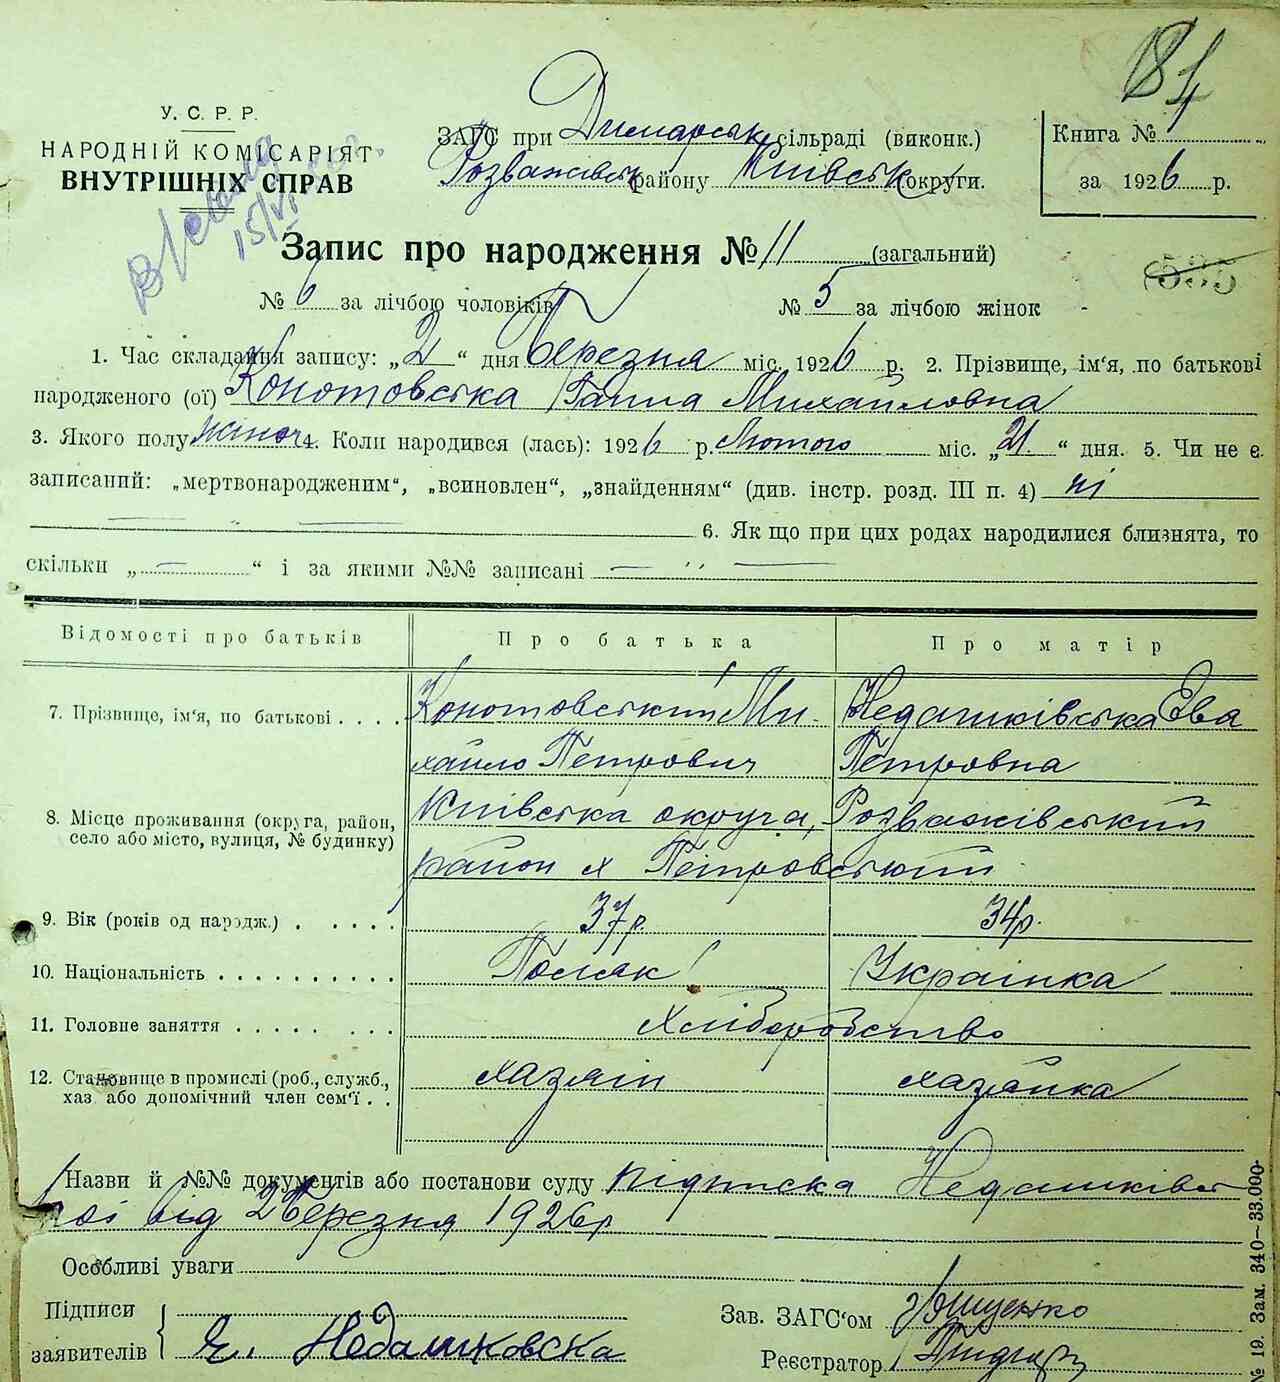 184
У. С. Р. Р.
НАРОДНІЙ КОМІСАРІЯТ
ВНУТРІШНІХ СПРАВ
15/VI
ЗАГС при Димарськ сільраді (виконк.)
Розважівськ району Київськ округи.
Книга №
за 1926 р.
Запис про народження № 11 (загальний)
535
№ 6 за лічбою чоловіків № 5 за лічбою жінок -
1. Час складання запису: „2“ дня Березня міс. 1926 р. 2. Прізвище, ім'я, по батькові
народженого (ої) Конотовська Ганна Михайловна
3. Якого полу жіноч 4. Коли народився (лась): 1926 р. Лютого міс. „21.“ дня. 5. Чи не є
записаний: „мертвонародженим“, „всиновлен“, „знайденням“ (див. інстр. розд. III п. 4) ні
6. Як що при цих родах народилися близнята, то
скільки „ — “ і за якими №№ записані — „ —
Відомості про батьків Про батька Про матір
7. Прізвище, ім'я, по батькові . . . . Конотовський Ми- Недашківська Ева
хайло Петрович Петровна
8. Місце проживання (округа, район, село або місто, вулиця, № будинку) Київська округа, Розважівський
район х Петровський
9. Вік (років од народж.) . . . . . 37р. 34р.
10. Національність . . . . . . . . . . Поляк! Українка
11. Головне заняття . . . . . . . . Хліборобство
12. Становище в промислі (роб., служб., хаз. або допомічний член сем'ї . . хазяїн хазяйка
Назви й №№ документів або постанови суду підписка Недашківсь
кої від 2 Березня 1926р
Особливі уваги
Підписи
заявителів Є. Недашковска
Зав. ЗАГС'ом
Реєстратор
№ 19. Зам. 340—33.000